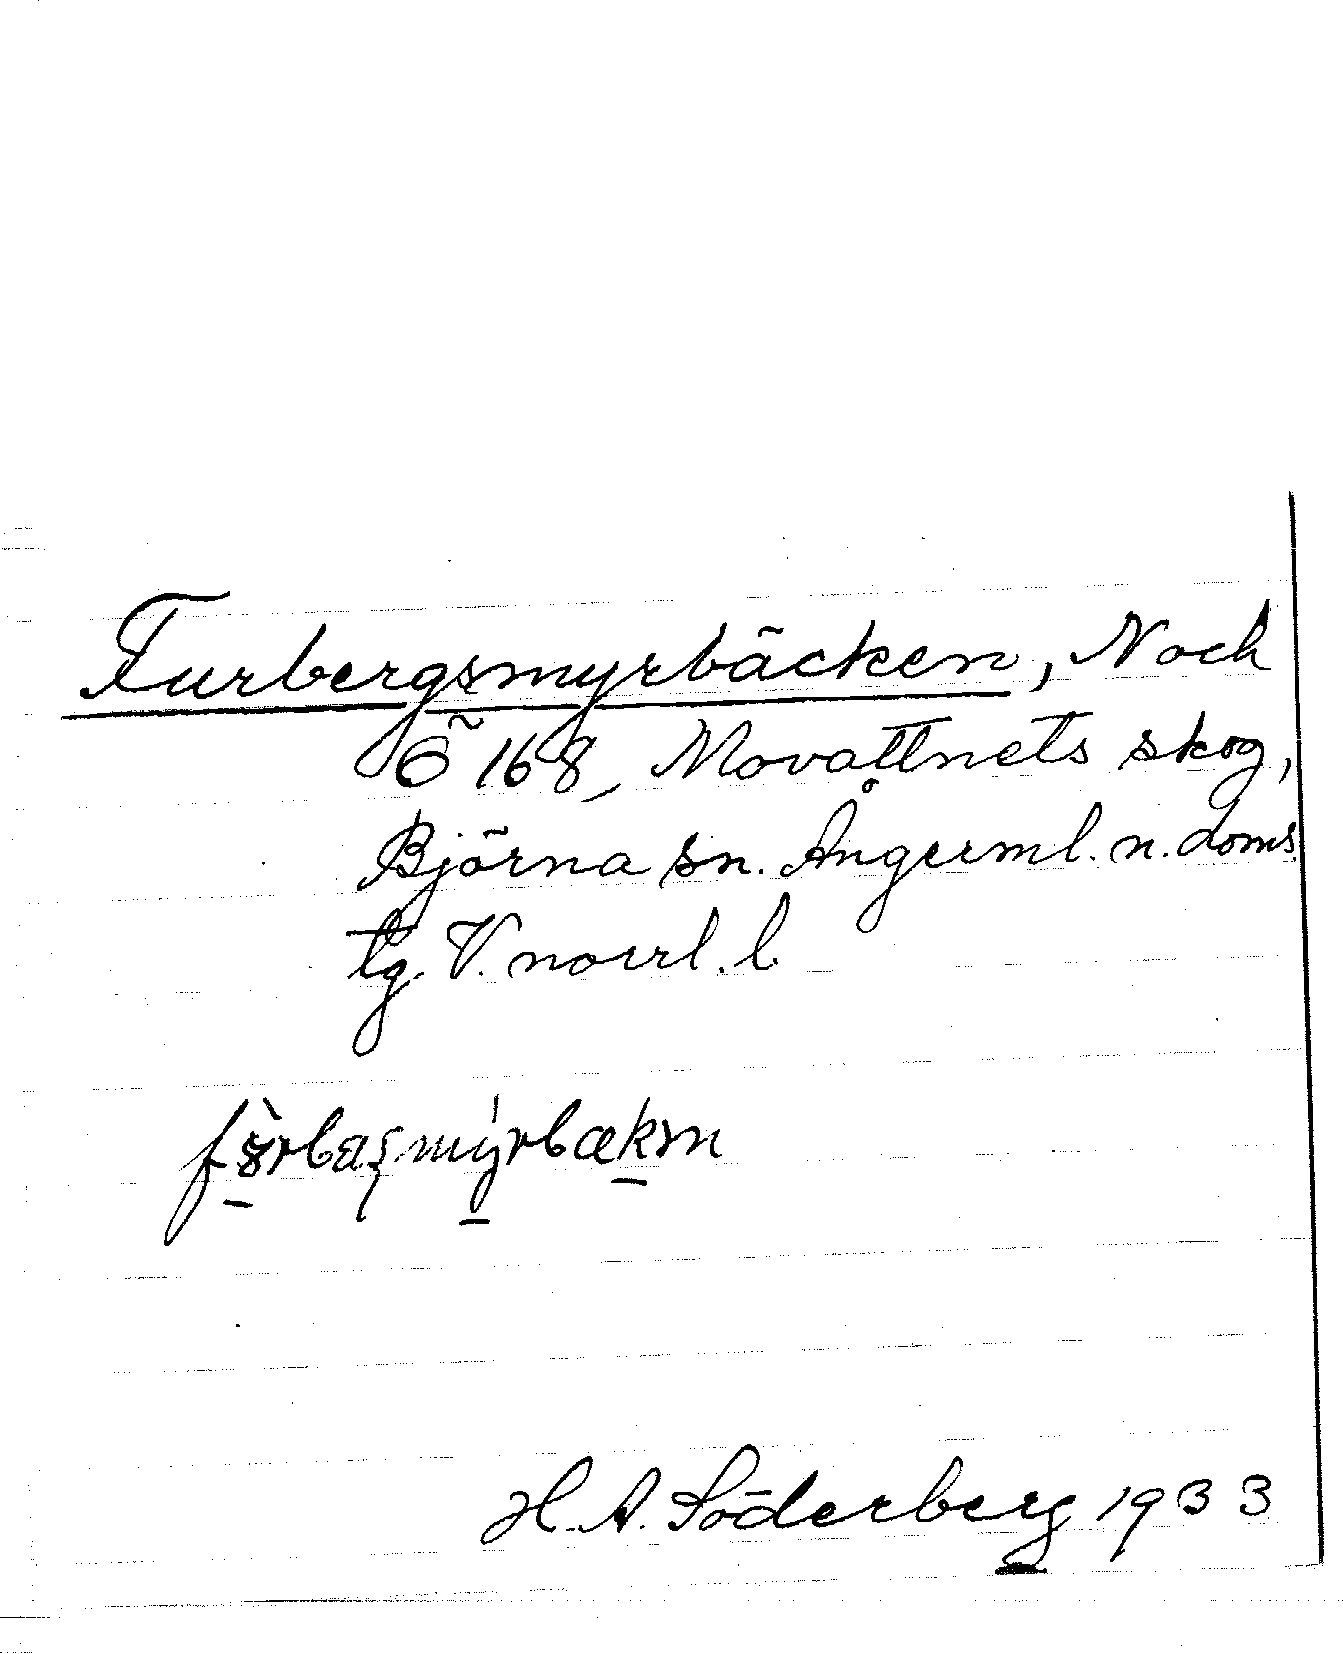 Furbergsmyrbäcken, N och
Ö 168, Movattnets skog,
Björna sn. Ångerml. n. doms.
tg. V. norrl. l.
H. A. Söderberg 1933